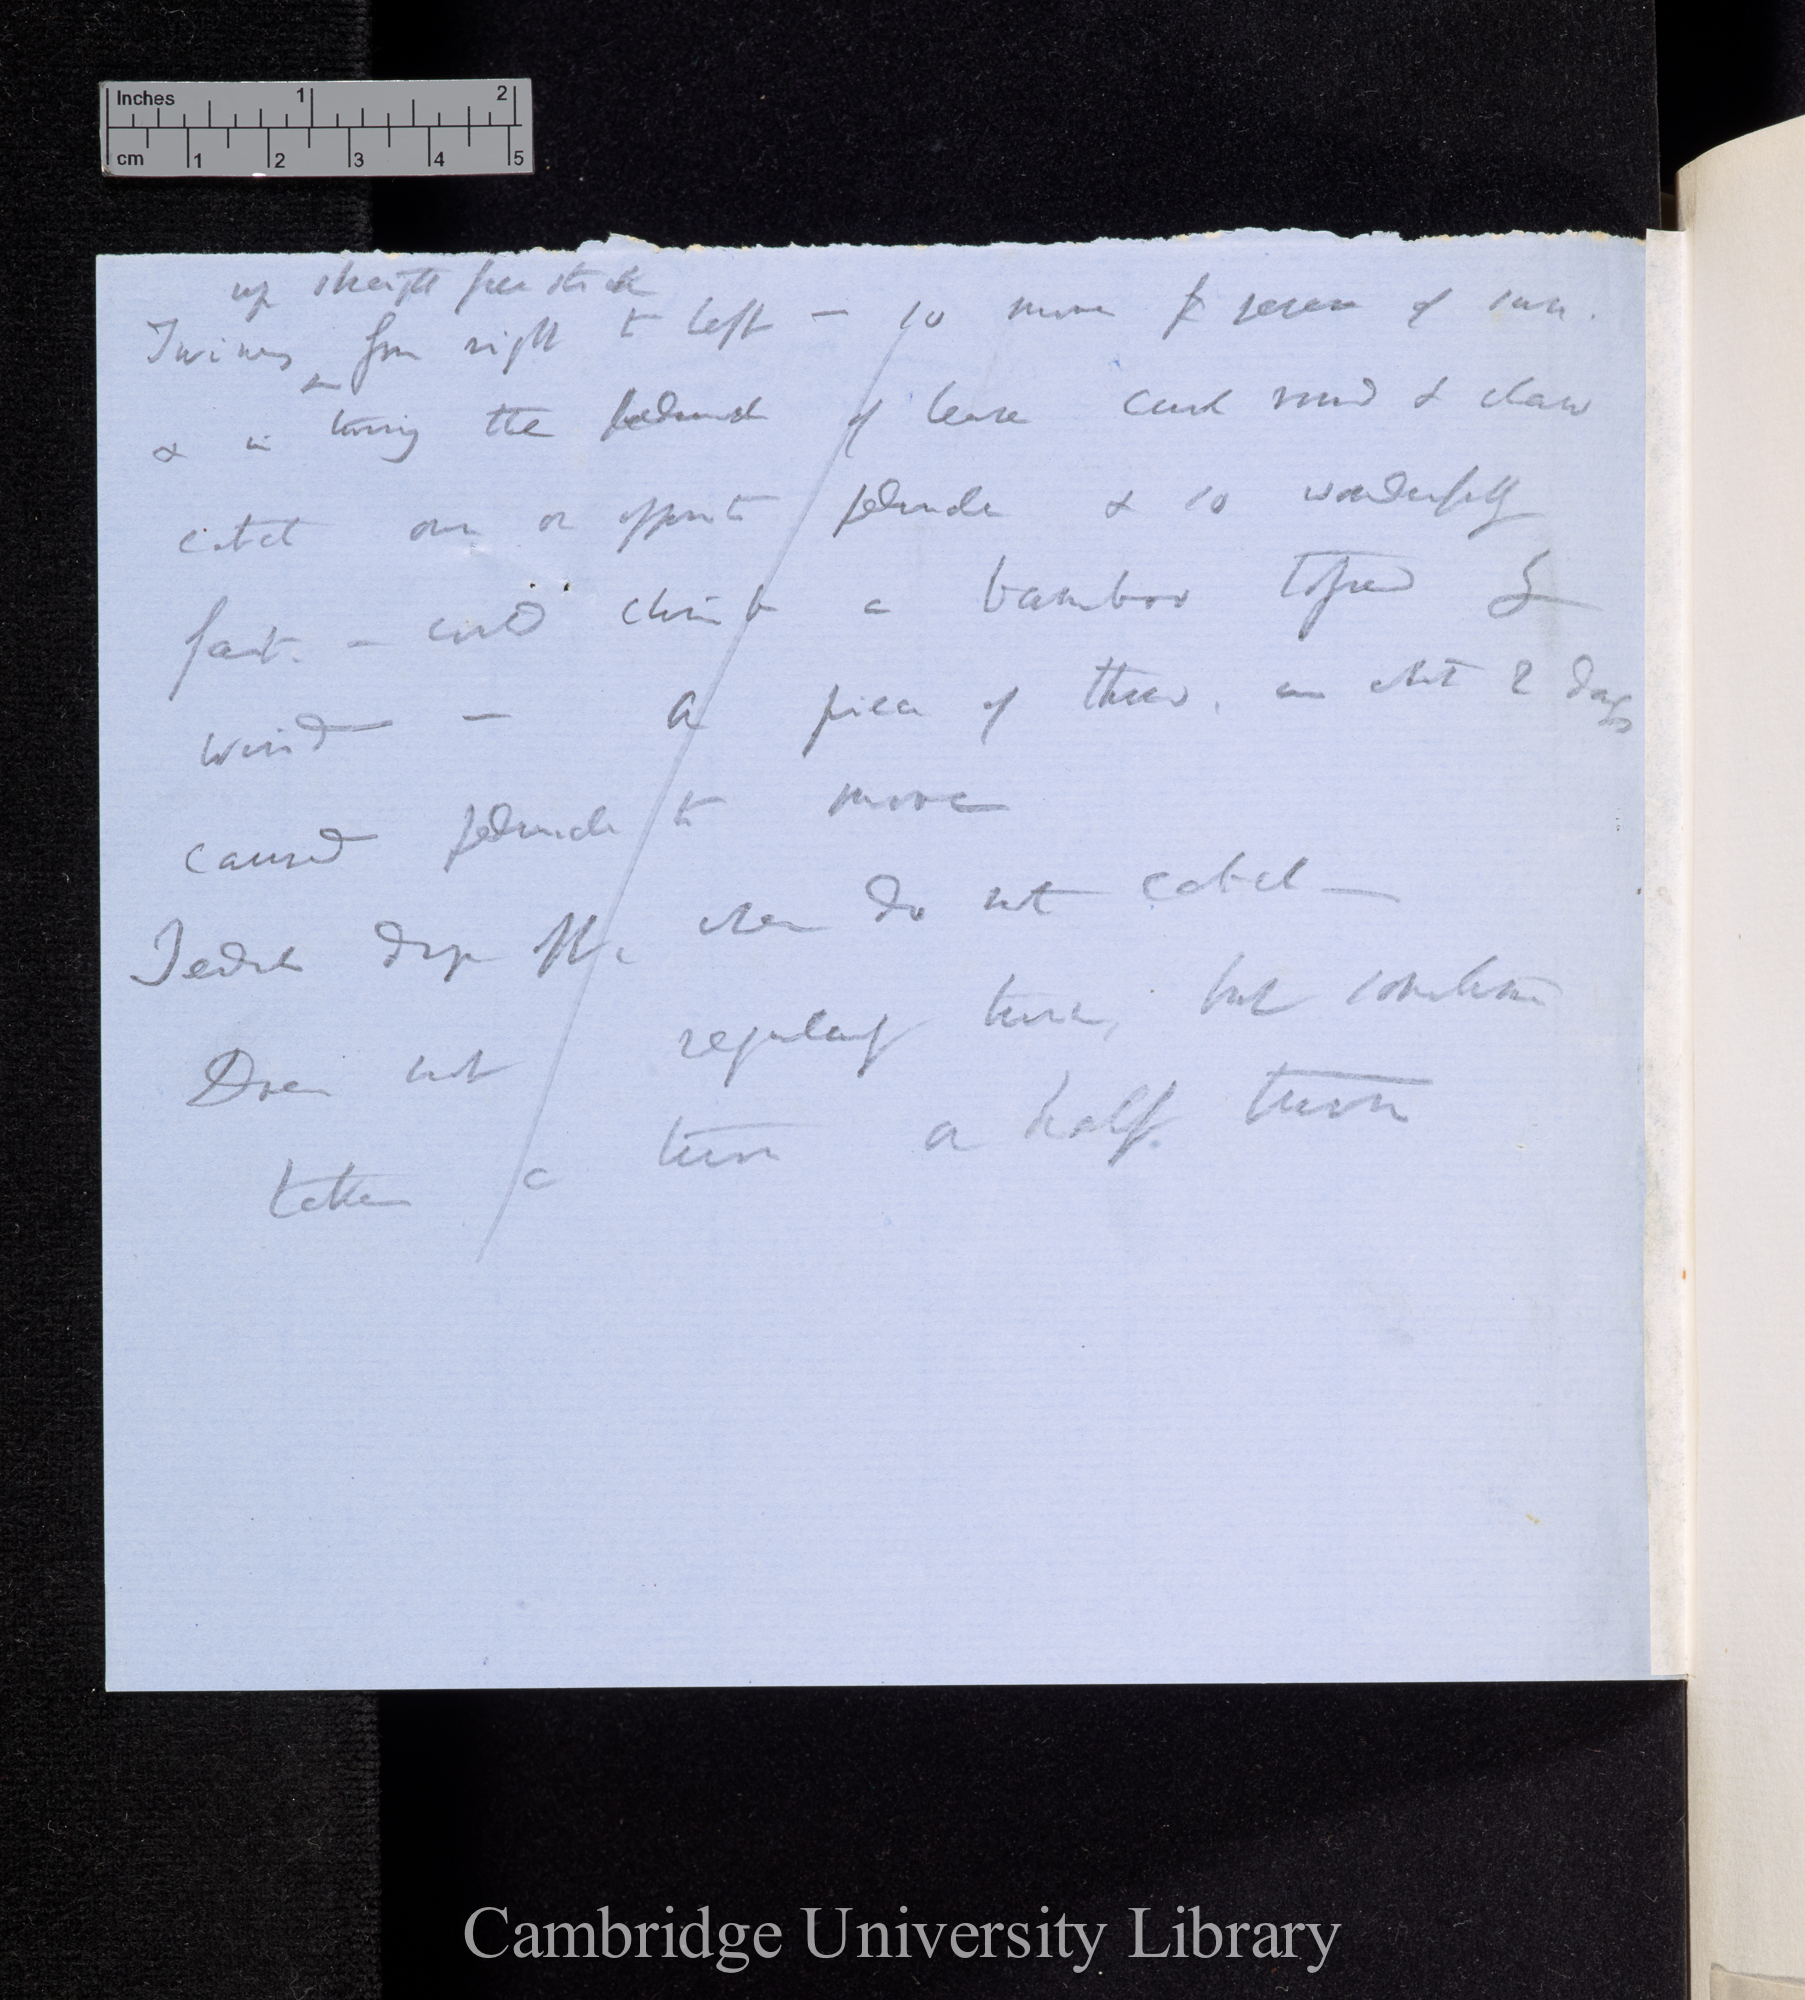 Inches 1 2
cm 1 2 3 4 5
up straight free stick
Twines from right to left — so move of sun.
& in the peduncle of leave curl round & claw
catch on or opposite peduncle & so wonderfully
fast. — could climb a bamboo by
wind — A piece of thread, in 2 days
caused peduncle to move
drop off when do not catch —
Does not regularly twine, but sometimes
takes a turn or half turn
Cambridge University Library